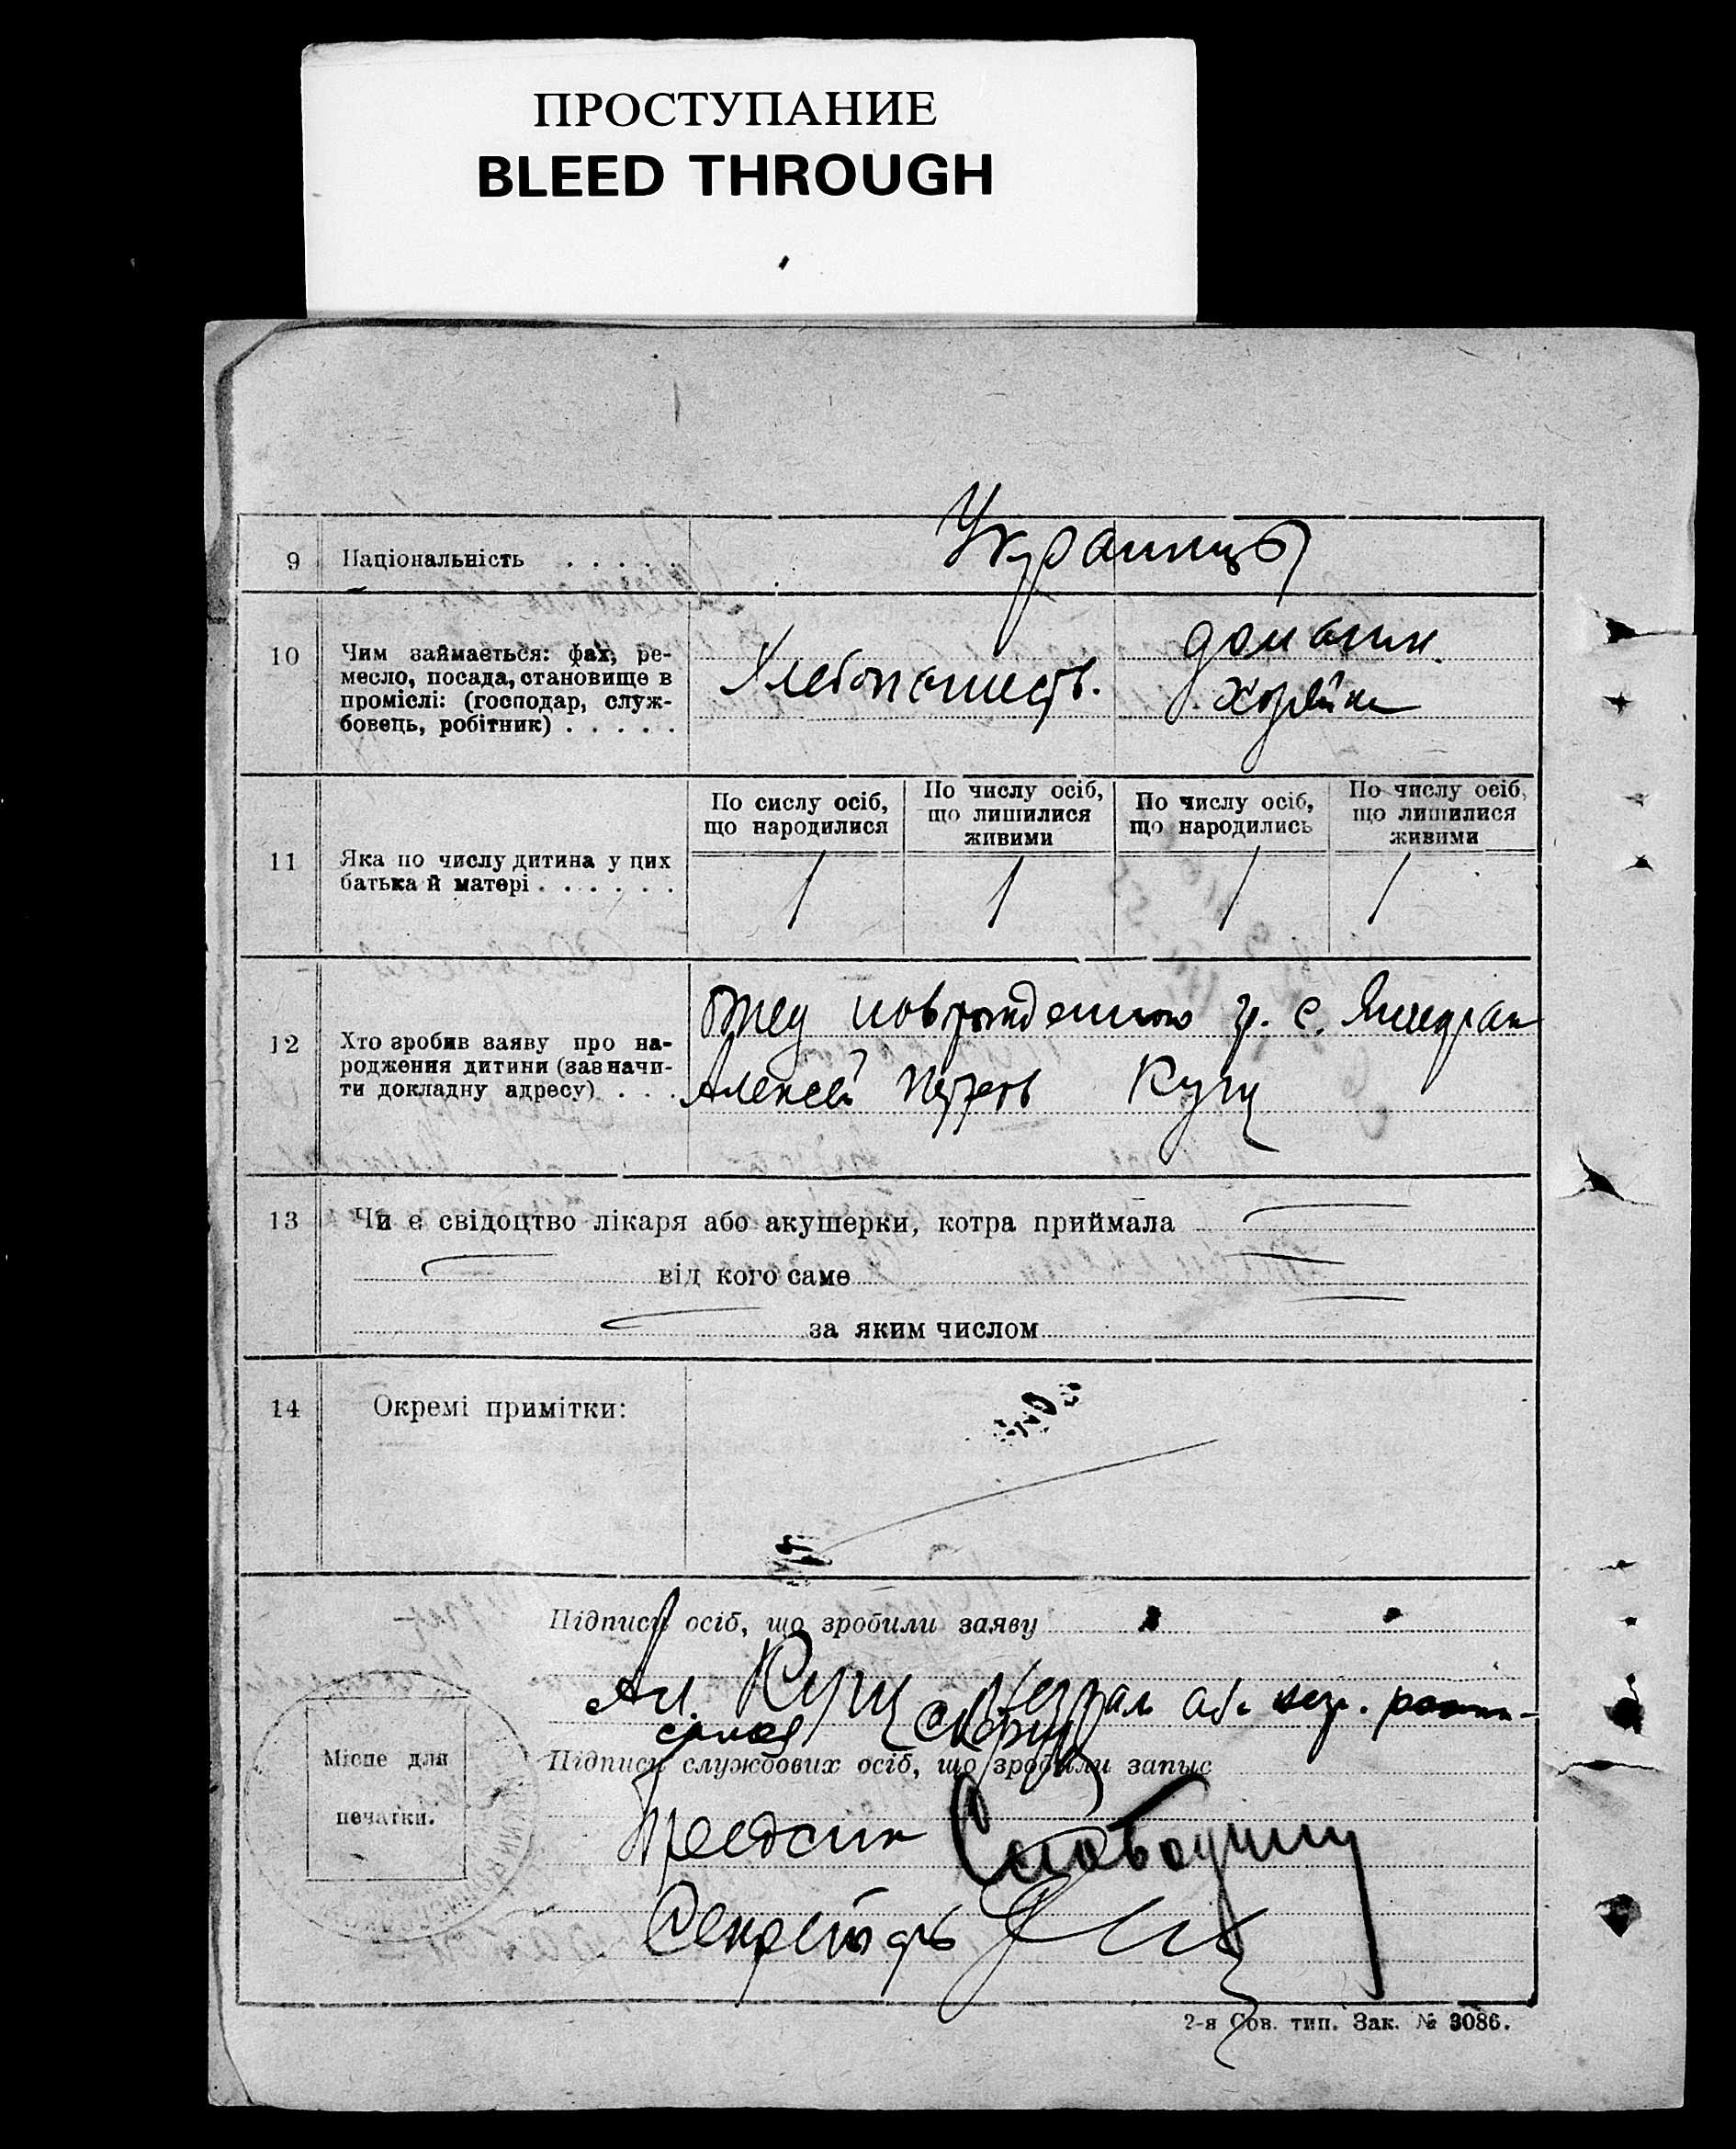 ПРОСТУПАНИЕ
BLEED THROUGH
9 Національність . . . . Украинцы
10 Чим займаеться: фах, ре-
месло, посада, становище в
проміслі: (господар, служ-
бовець, робітник) . . . . .
Хлебопашеств.
домашн.
хозяйка
По сислу осіб,
що народилися
По числу осіб,
що лишилися
живими
По числу осіб,
що народились
По числу осіб,
що лишилися
живими
11 Яка по числу дитина у цих
батька й матері . . . . . .
1 1 1 1
12 Хто зробив заяву про на-
родження дитини (зазначи-
ти докладну адресу) . . .
Отец новрожденного гр. с.
Алексей Петров Куц
13 Чи є свідоцтво лікаря або акушерки, котра приймала
від кого саме
за яким числом
14 Окремі примітки:
Підписи осіб, що зробили заяву
Ал. Куц
Підписи службових осіб, що зробили запыс
Місце для
печатки.
Предсик
Секретарь
2-я Сов. тип. Зак. № 3086.